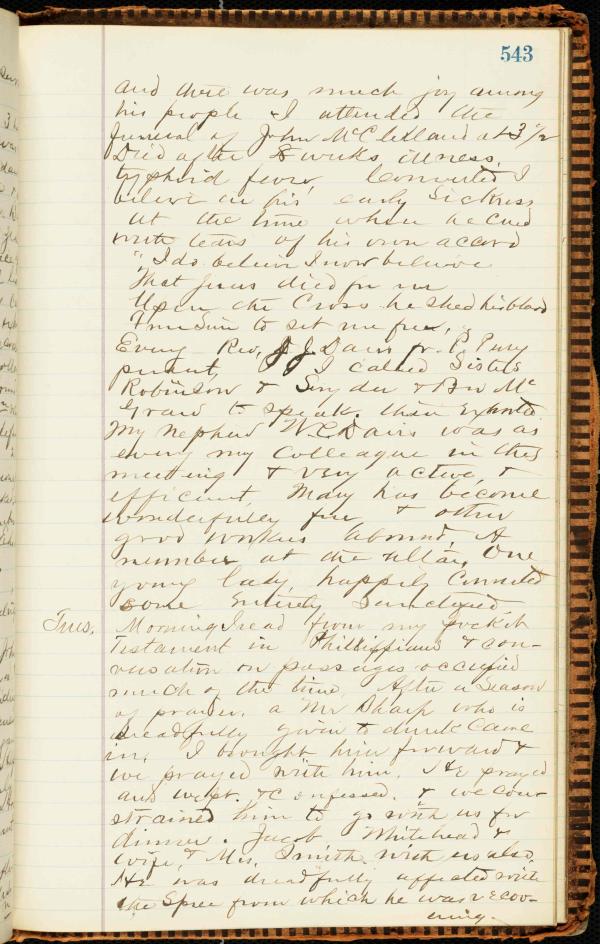 543
and there was much joy among
his people I attended the
funeral of John McClelland at 3 1/2
Died after 8 weeks illness,
typhoid fever, Converted I
believe in his early Sickness
at the time when he cried
with tears of his own accord
"I do believe I now believe
That Jesus died for me
Upon the Cross he shed his blood
From Sin to set me free,"
Evening Rev, J. J. Davis
present, I called Sisters
Robinson & Snyder & Bro Mc
Graw to speak, then exhorted
My Nephew W. C. Davis was as
every my Colleague in this
meeting & very active, &
efficient, Mary has become
wonderfully free, & other
good workers abound, A
number at the altar, One
young lady happily Converted
some Entirely Sanctified,
Tues, Morning I read from my pocket
Testament in Phillippians & con-
versation on passages occupied
much of the time, After a Season
of prayer, a Mr Sharp who is
dreadfully given to drink Came
in, I brought him forward &
we prayed with him, He prayed
and wept, & Confessed, & we con-
strained him to go with us for
dinner. Jacob Whitehead &
wife, & Mrs, Smith with us also,
He was dreadfully affected with
the Spree from which he was recov-
ering.